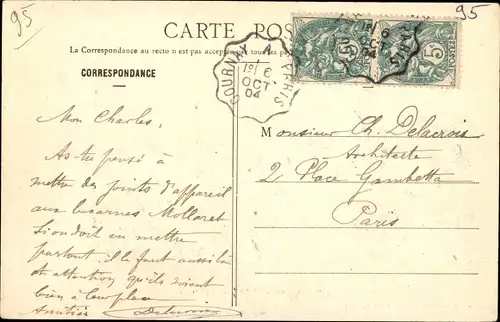 95
95
CARTE POS
La Correspondance au recto n'est pas acceptée par tous les pays
CORRESPONDANCE
GOURNAY A PARIS
1º/ 6
OCT
04
Mon Charles,
As-tu pensé à
mettre des joints d'appareil
aux lucarnes Mollaret
Si on doit en mettre
partout, il le faut aussi là
et attention qu'ils soient
bien à leur place
Amitiés Delacroix
Monsieur Ch. Delacroix
Architecte
2 Place Gambetta
Paris